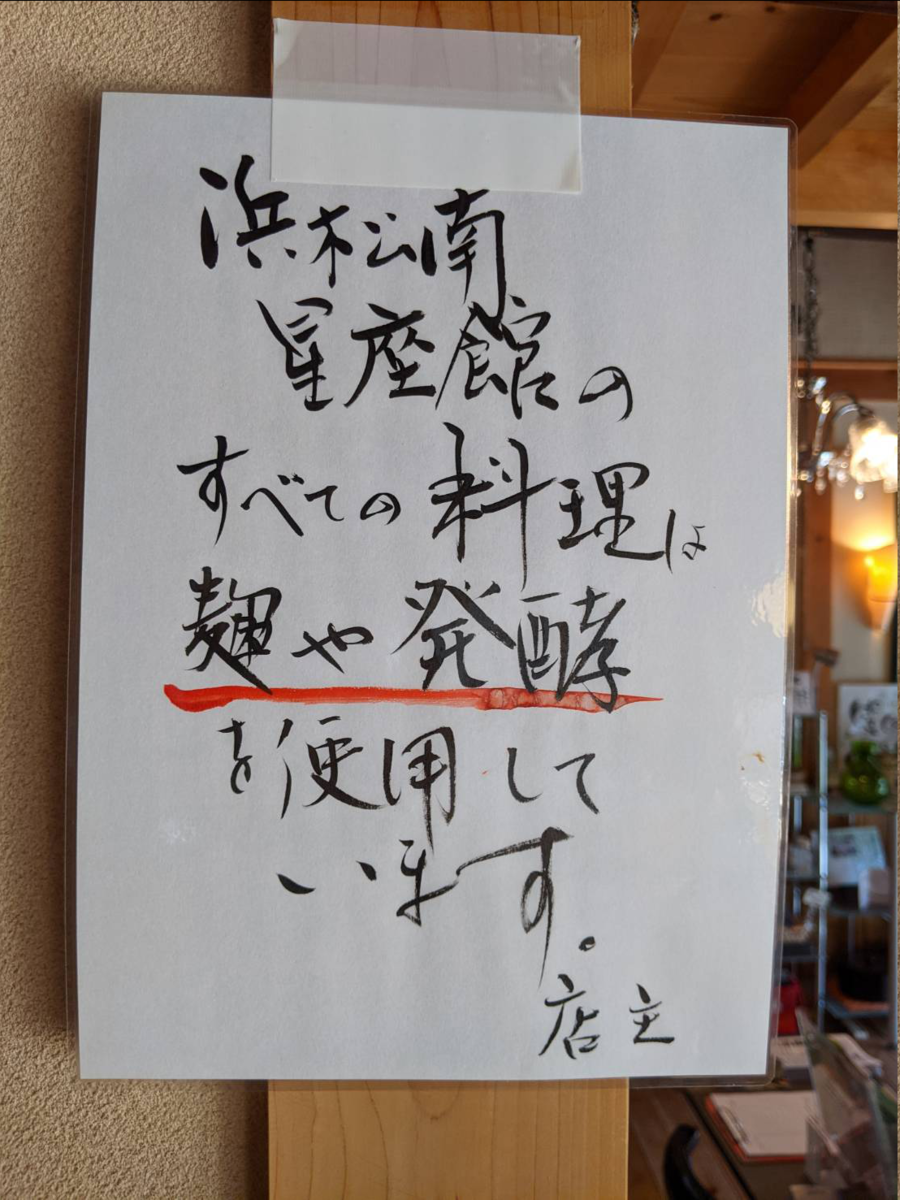 浜松南
星座館の
すべての料理は
麹や発酵
を使用して
います。
店主